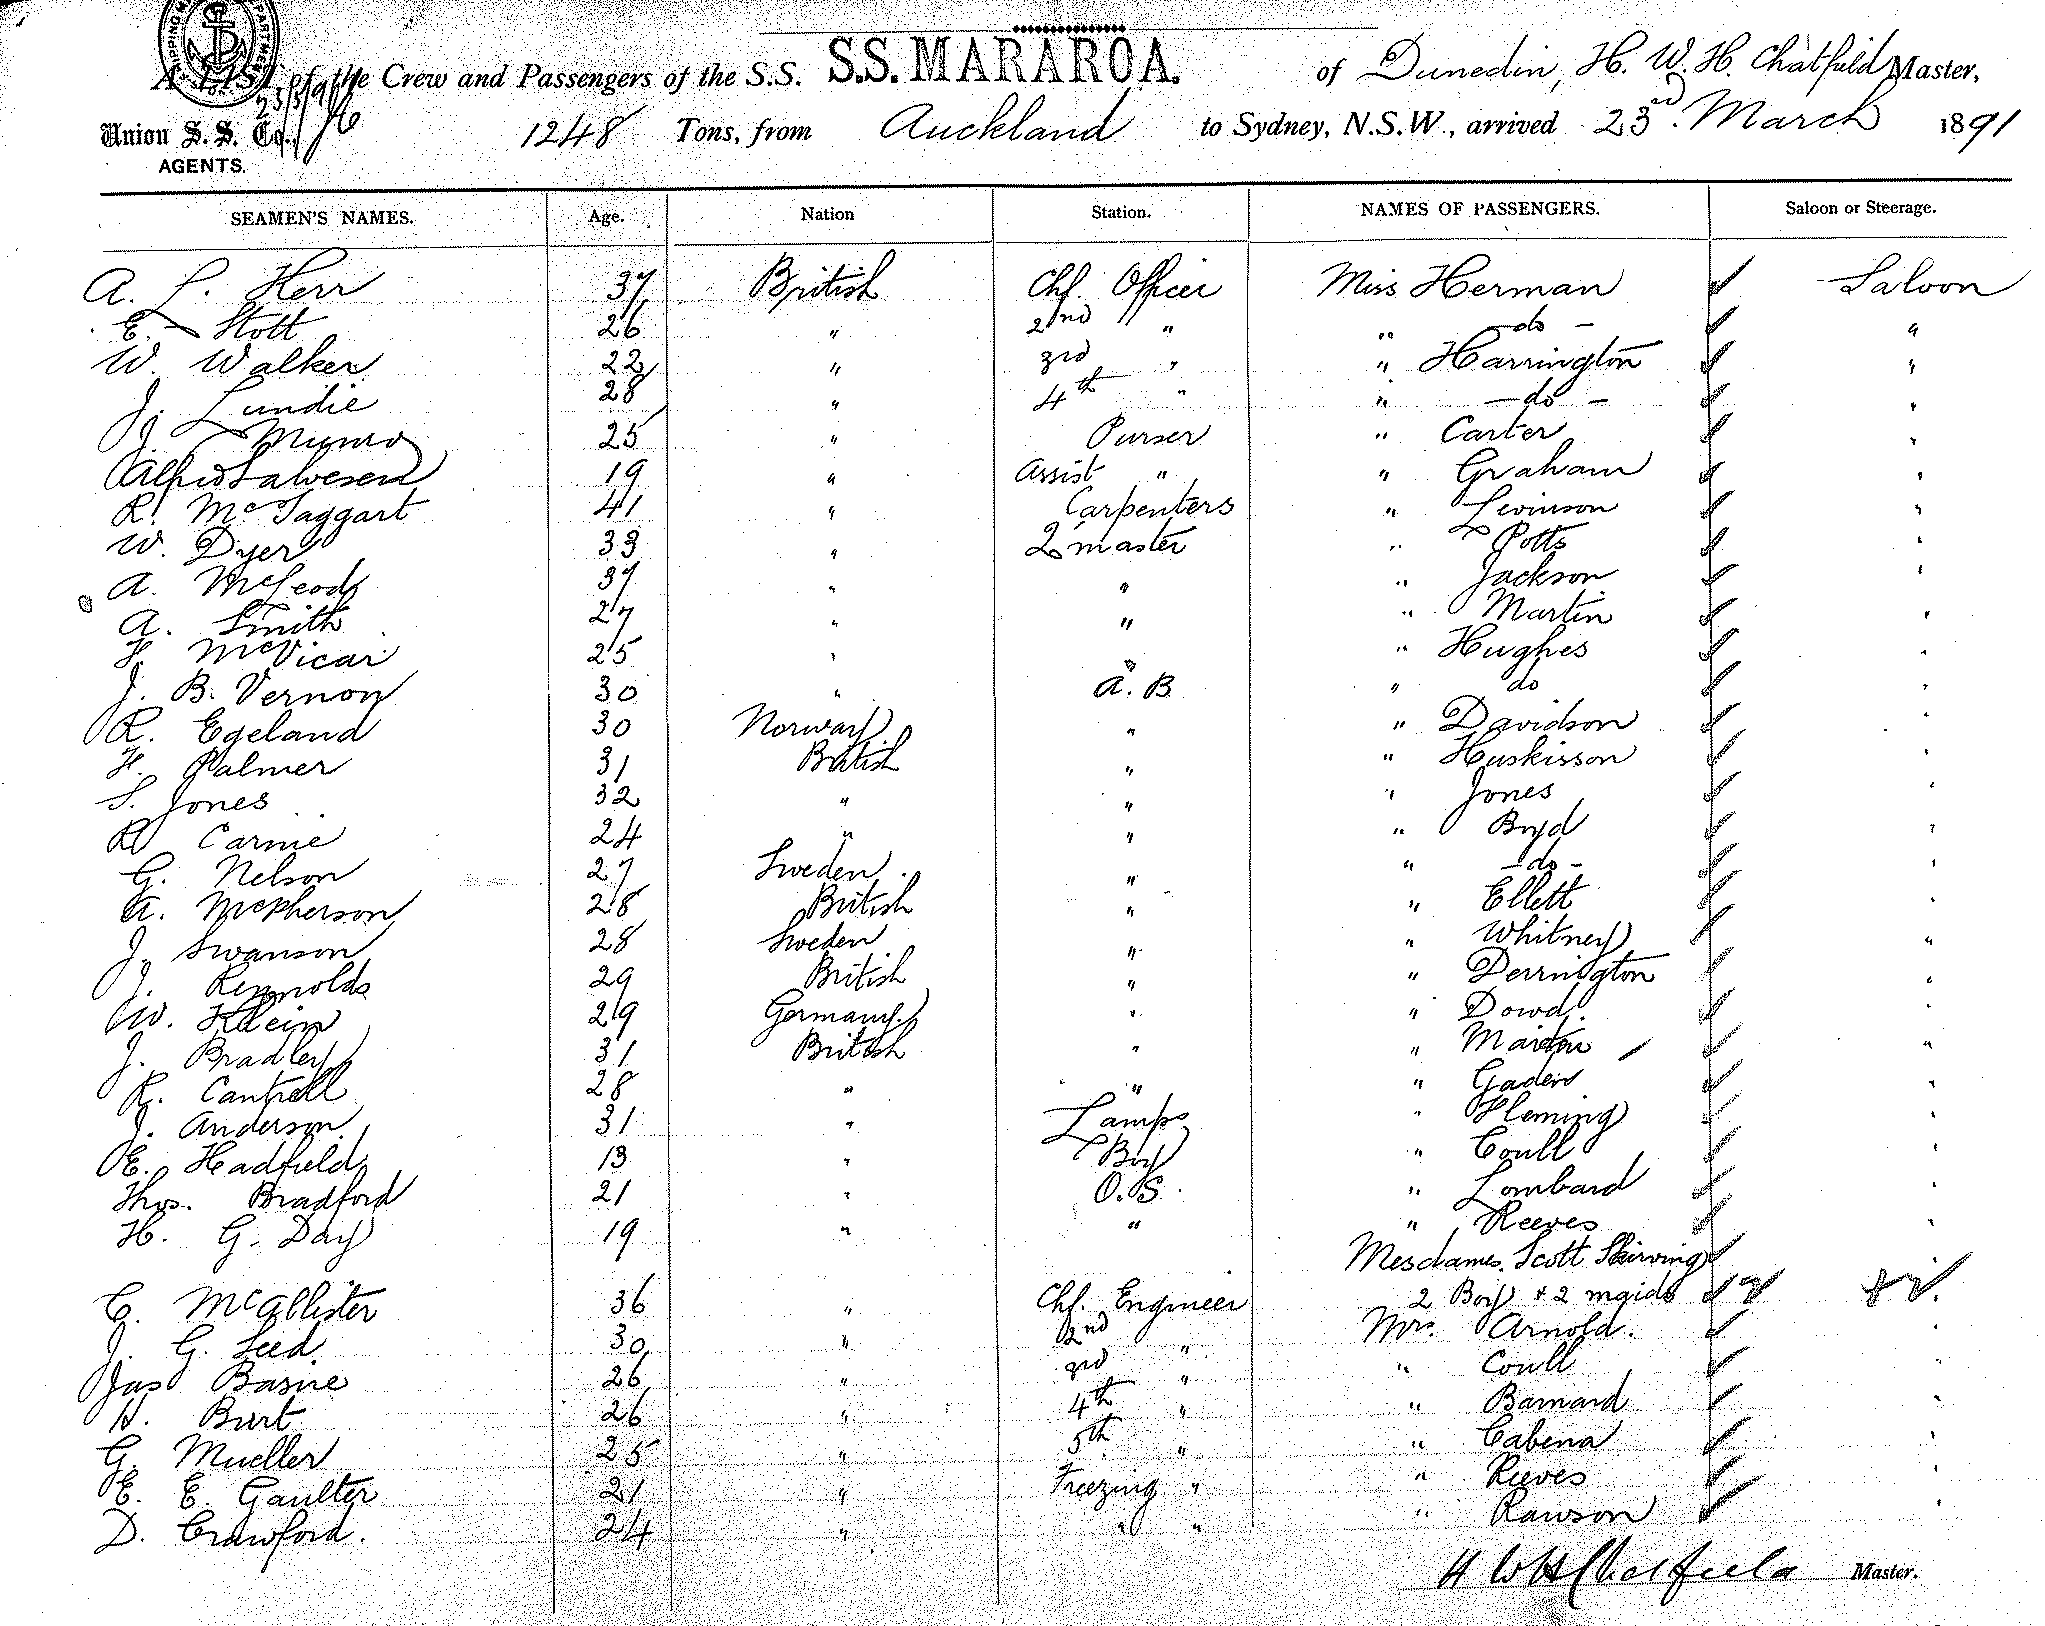 A LIST of the Crew and Passengers of the S.S. S.S. MARAROA. of Dunedin, H. W. H. Chatfield Master,
Union S. S. Co., 1248 Tons, from Auckland to Sydney, N.S.W., arrived 23rd. March 1891
AGENTS.
SEAMEN'S NAMES. Age. Nation Station. NAMES OF PASSENGERS. Saloon or Steerage.
A. L. Kerr 37 British Chf. Officer Miss Herman Saloon
E. Stott 26 " 2nd " " - do - "
W Walker 22 " 3rd " " Harrington "
J. Lundie 28 " 4th " " - do - "
J. Munro 25 " Purser " Carter "
Alfred Salvesen 19 " Assist " " Graham "
R. McTaggart 41 " Carpenters " Levinson "
W. Dyer 33 " Q master " Potts "
A. McLeod 37 " " " Jackson
A. Smith 27 " " " Martin "
F. McVicar 25 " " " Hughes "
J. B. Vernon 30 " A. B. " do "
R. Egeland 30 Norway " " Davidson "
F. Palmer 31 British " " Huskisson "
S. Jones 32 " " " Jones "
R Carnie 24 " " " Boyd "
G. Nelson 27 Sweden " " - do - "
A. McPherson 28 British " " Ellett "
J. Swanson 28 Sweden " " Whitney "
J. Reynolds 29 British " " Derrington "
W. Klein 29 Germany " " Dowd "
J. Bradley 31 British " " Martin "
R. Cantrell 28 " " " Gaden "
J. Anderson 31 " Lamps " Fleming "
E. Hadfield 13 " Boy " Coull "
Thos. Bradford 21 " O. S. " Lombard "
H. G. Day 19 " " " Reeves "
Mesdames. Scott Skirving "
C. McAllister 36 " Chf. Engineer 2 Boys + 2 maids
J. G. Seed 30 " 2nd " Mrs. Arnold. "
Jas Basire 26 " 3rd " " Coull "
H. Burt 26 " 4th " " Barnard "
G. Mueller 25 " 5th " " Cabena "
E. E. Gaulter 21 " Freezing " " Reeves "
D. Crawford. 24 " " " " Rawson "
H W H Chatfield Master.